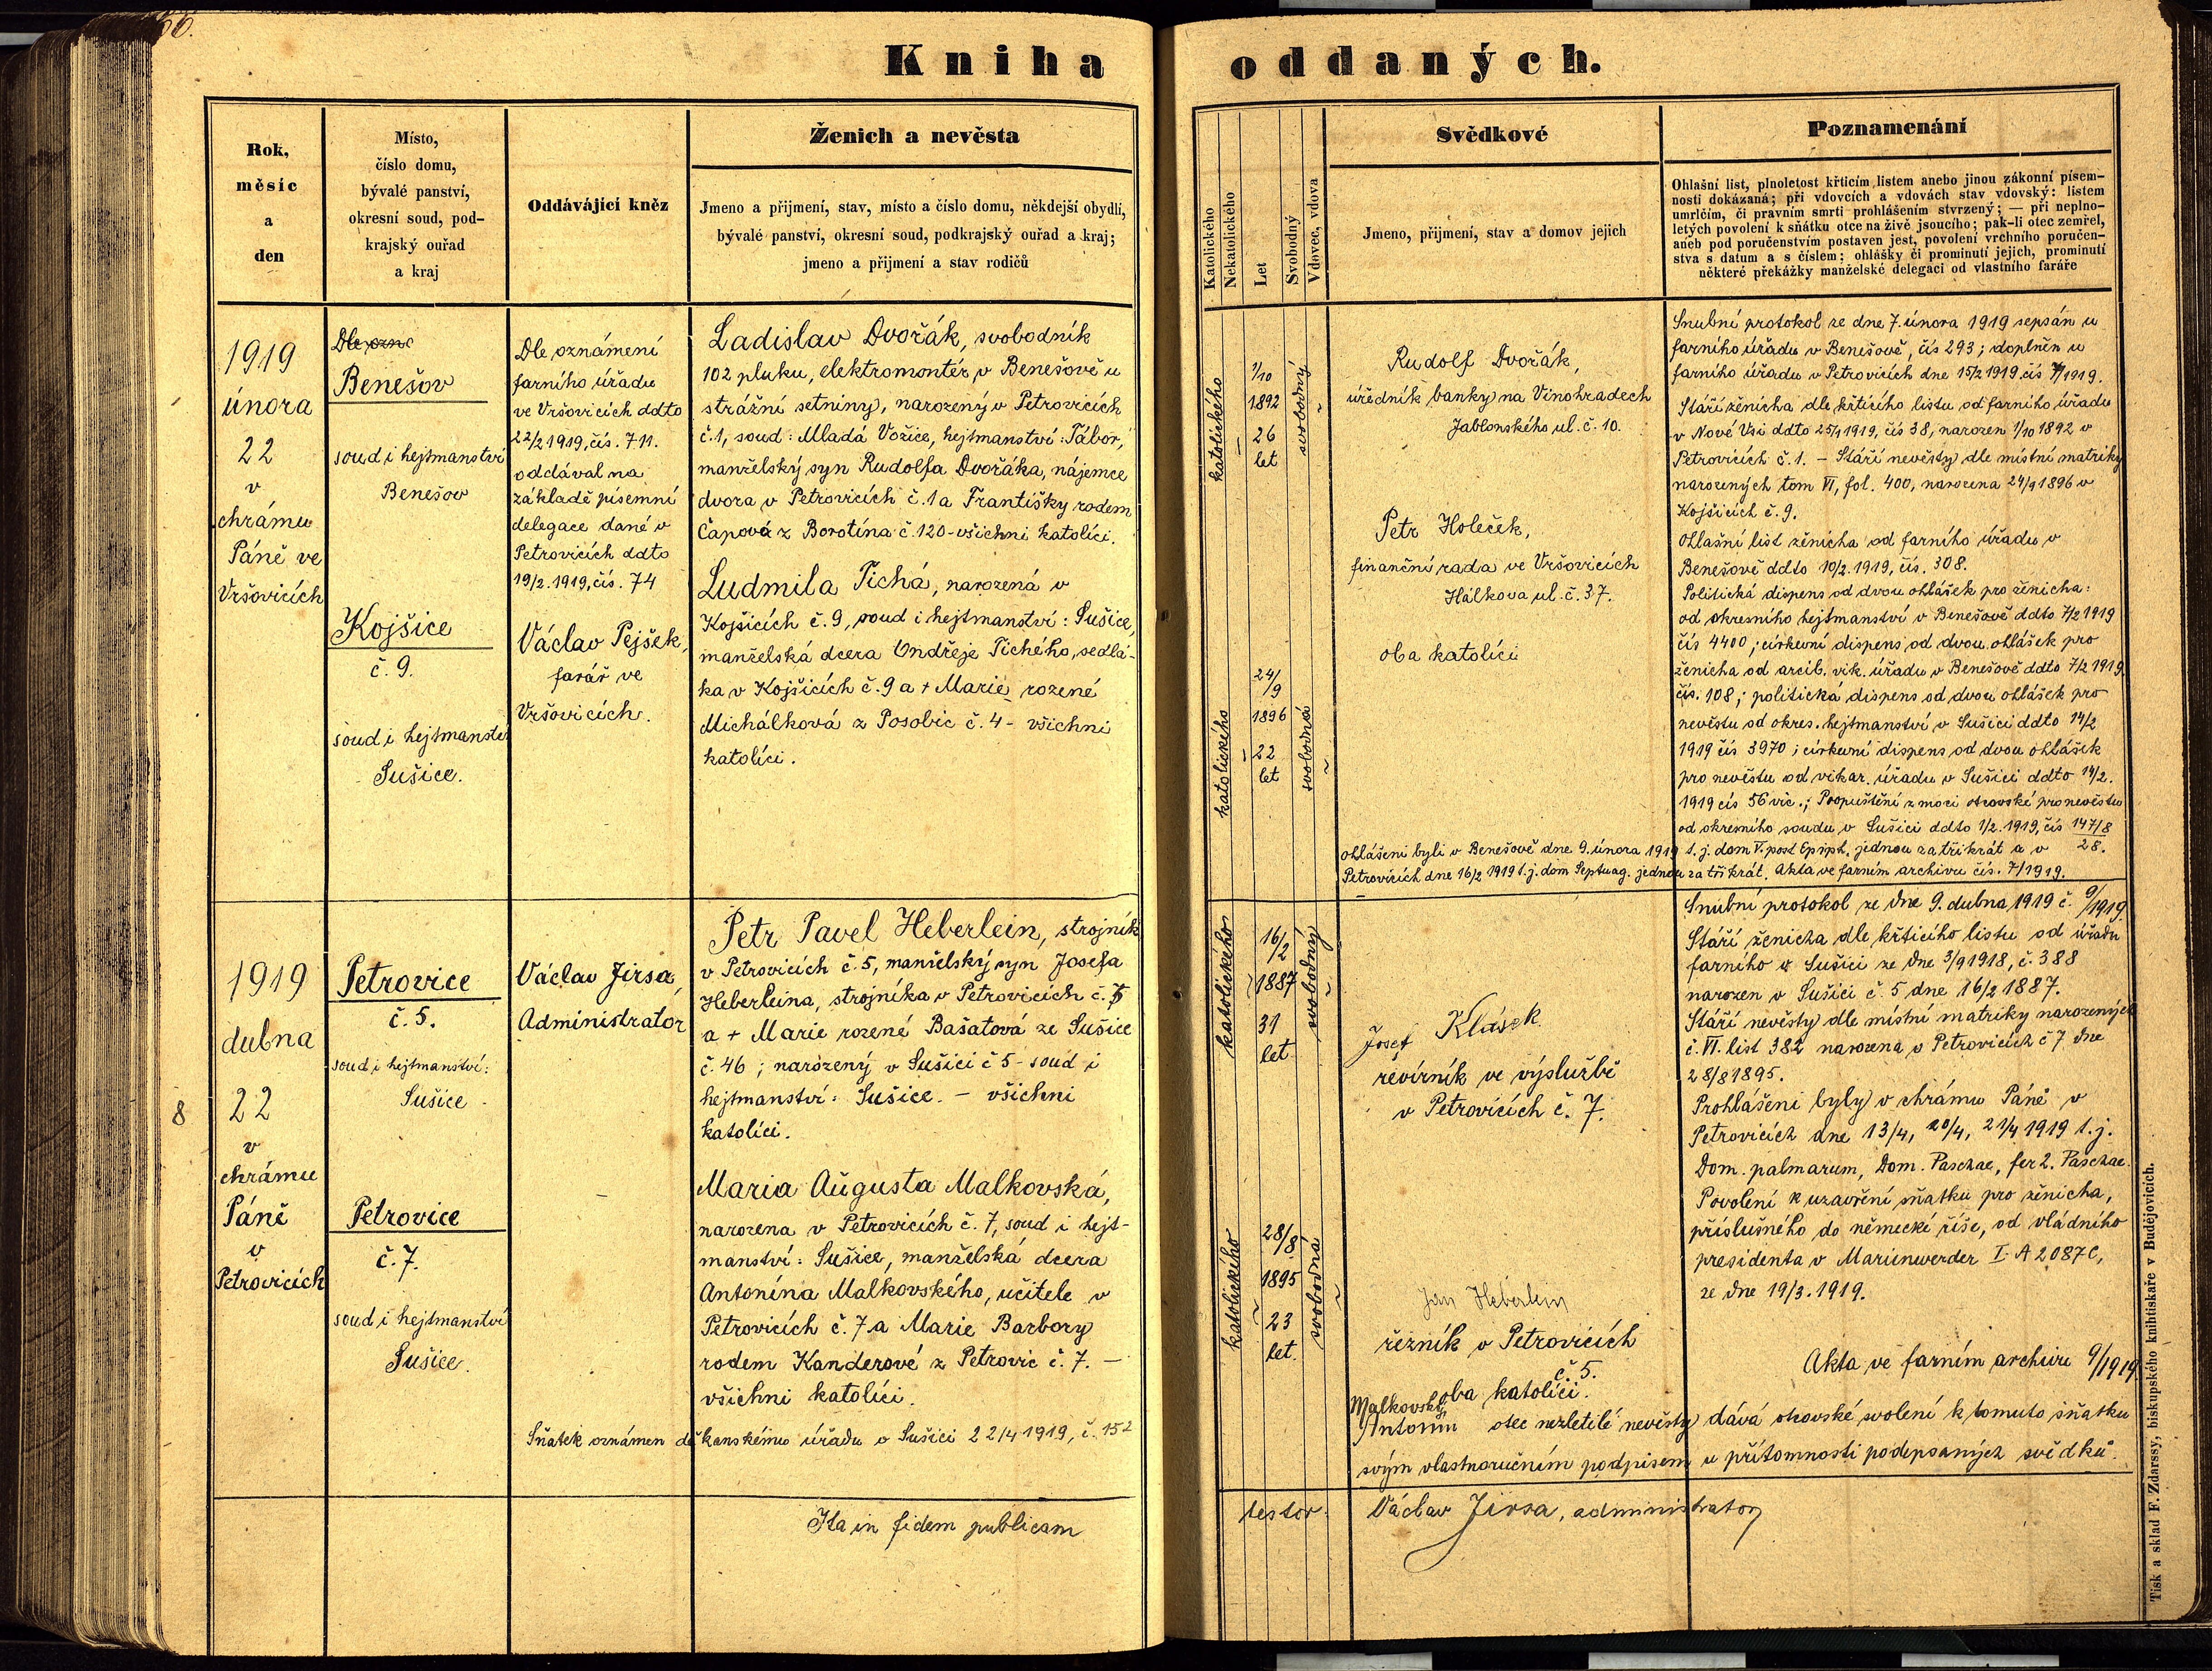 Kniha oddaných.
Rok,
měsíc
a
den
Místo,
číslo domu,
bývalé panství,
okresní soud, pod-
krajský ouřad
a kraj
Oddávající kněz
Ženich a nevěsta
Jmeno a přijmení, stav, místo a číslo domu, někdejší obydlí,
bývalé panství, okresní soud, podkrajský ouřad a kraj;
jmeno a přijmení a stav rodičů
Katolického
Nekatolického
Let
Svobodný
Vdovec, vdova
Svědkové
Jmeno, přijmení, stav a domov jejich
Poznamenání
Ohlašní list, plnoletost křticím listem anebo jinou zákonní písem-
ností dokázaná; při vdovcích a vdovách stav vdovský: listem
umrlčím, či pravním smrti prohlášením stvrzený; — při neplno-
letých povolení k sňátku otce na živě jsoucího; pak-li otec zemřel,
aneb pod poručenstvím postaven jest, povolení vrchního poručen-
stva s datum a s číslem; ohlášky či prominutí jejich, prominutí
některé překážky manželské delegaci od vlastního faráře
1919
února
22
v
chrámu
Páně ve
Vršovicích
Dle ozn
Benešov
soud i hejtmanství
Benešov
Kojšice
č. 9.
soud i hejtmanství
Sušice.
Dle oznámení
farního úřadu
ve Vršovicích ddto
22/2 1919, čís. 711.
oddával na
základě písemní
delegace dané v
Petrovicích ddto
19/2. 1919, čís. 74
Václav Pejšek,
farář ve
Vršovicích.
Ladislav Dvořák, svobodník
102 pluku, elektromontér v Benešově u
strážní setniny, narozený v Petrovicích
č.1, soud: Mladá Vožice, hejtmanství: Tábor,
manželský syn Rudolfa Dvořáka, nájemce
dvora v Petrovicích č. 1 a Františky rodem
Čapová z Borotína č. 120 - všichni katolíci.
Ludmila Tichá, narozená v
Kojšicích č. 9, soud i hejtmanství: Sušice,
manželská dcera Ondřeje Tichého, sedlá-
ka v Kojšicích č. 9 a + Marie rozené
Michálková z Posobic č. 4 - všichni
katolíci.
katolického
1/10
1892
26
let
svobodný
katolického
24/9
1896
22
let
svobodná
Rudolf Dvořák,
úředník banky na Vinohradech
Jablonského ul. č. 10.
Petr Holeček,
finanční rada ve Vršovicích
Hálkova ul. č. 37.
oba katolíci
Snubní protokol ze dne 7. února 1919 sepsán u
farního úřadu v Benešově, čís 293; doplněn u
farního úřadu v Petrovicích dne 15/2 1919 čís 7/1919.
Stáří ženicha dle křticího listu od farního úřadu
v Nové Vsi ddto 25/1 1919, čís 38, narozen 1/10 1892 v
Petrovicích č. 1. - Stáří nevěsty dle místní matriky
narozených tom VI, fol. 400, narozena 24/9 1896 v
Kojšicích č. 9.
Ohlašní list ženicha od farního úřadu v
Benešově ddto 10/2. 1919, čís. 308.
Politická dispens od dvou ohlášek pro ženicha:
od okresního hejtmanství v Benešově ddto 7/2 1919
čís 4400; církevní dispens od dvou ohlášek pro
ženicha od arcib. vik. úřadu v Benešově ddto 7/2 1919
čís. 108; politická dispens od dvou ohlášek pro
nevěstu od okres. hejtmanství v Sušici ddto 14/2
1919 čís 3970; církevní dispens od dvou ohlášek
pro nevěstu od vikar. úřadu v Sušici ddto 14/2.
1919 čís 56 vic.; Propuštění z moci otcovské pro nevěstu
od okresního soudu v Sušici ddto 1/2. 1919, čís 147/8
28.
Ohlášeni byli v Benešově dne 9. února 1919 t. j. dom V. post Epiph. jednou za třikrát a v
Petrovicích dne 16/2 1919 t. j. dom Septuag. jednou za třikrát. Akta ve farním archivu čís. 7/1919.
8
1919
dubna
22
v
chrámu
Páně
v
Petrovicích
Petrovice
č. 5.
soud i hejtmanství:
Sušice
Petrovice
č. 7.
soud i hejtmanství
Sušice.
Václav Jirsa,
Administrátor
Petr Pavel Heberlein, strojník
v Petrovicích č. 5, manželský syn Josefa
Heberleina, strojníka v Petrovicích č. 5
a + Marie rozené Bašatová ze Sušice
č. 46; narozený v Sušici č 5 - soud i
hejtmanství: Sušice. - všichni
katolíci.
Maria Augusta Malkovská,
narozena v Petrovicích č. 7, soud i hejt-
manství: Sušice, manželská dcera
Antonína Malkovského, učitele v
Petrovicích č. 7 a Marie Barbory
rodem Kanderové z Petrovic č. 7. -
všichni katolíci.
Sňatek oznámen děkanskému úřadu v Sušici 22/4 1919, č. 152
katolického
16/2
1887
31
let
svobodný
katolického
28/8
1895
23
let.
svobodná
Josef Klásek
revírník ve výslužbě
v Petrovicích č. 7.
Jan Heberlein
řezník v Petrovicích
č. 5.
oba katolíci.
Snubní protokol ze dne 9. dubna 1919 č. 9/1919.
Stáří ženicha dle křticího listu od úřadu
farního v Sušici ze dne 3/9 1918, č. 388
narozen v Sušici č. 5 dne 16/2 1887.
Stáří nevěsty dle místní matriky narozených
č. VI. list 382 narozena v Petrovicích č 7 dne
28/8 1895.
Prohlášeni byly v chrámu Páně v
Petrovicích dne 13/4, 20/4, 21/4 1919 t. j.
Dom. palmarum, Dom. Paschae, fer 2. Paschae.
Povolení k uzavření sňatku pro ženicha,
příslušného do německé říše, od vládního
presidenta v Marienwerder I A 2087 C,
ze dne 19/3. 1919.
Akta ve farním archivu 9/1919
Malkovský
Antonín otec nezletilé nevěsty dává otcovské svolení k tomuto sňatku
svým vlastnoručním podpisem u přítomnosti podepsaných svědků.
Ita in fidem publicam
testor. Václav Jirsa, administrator
Tisk a sklad F. Zdarssy, biskupského knihtiskaře v Budějovicích.